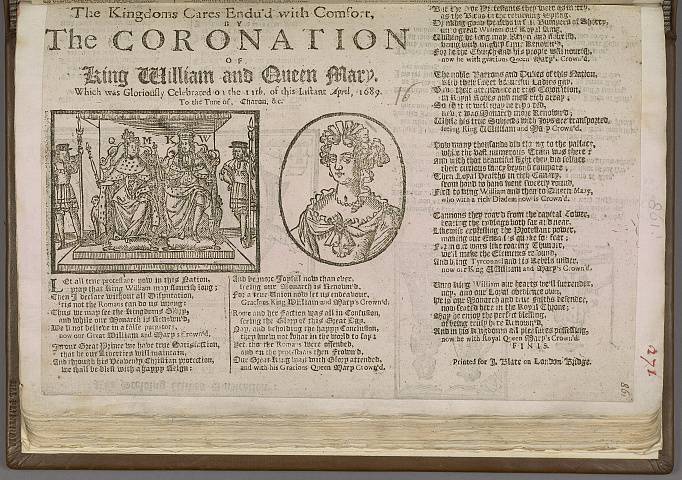 The Kingdoms Cares Endu'd with Comfort,
BY
The CORONATION
OF
King William and Queen Mary.
Which was Gloriously Celebrated on the 11th. of this Instant April, 1689.
To the Tune of, Charon, &c.
16
Q M K W
LEt all true protestants now in this Nation,
pray that King William may flourish long;
Then I declare without all Disputation,
'tis not the Romans can do us wrong:
Thus we may see the Kingdoms Glory,
and while our Monarch is Renown'd,
We'll not believe in a false
now our Great William and Mary's Crown'd.
In our Great Prince we have true Satisfaction,
that he our Liberties will maintain,
And through his Heavenly Christian protection,
we shall be blest with a happy Reign:
And be more Joyful now than ever,
seeing our Monarch is Renown'd,
For a true Union now let us endeavour,
Gracious King William and Mary's Crown'd.
Rome and her Faction was all in Confusion,
seeing the Glory of this Great Day,
Nay, and beholding the happy Conclusion,
they knew not what in the world to say:
Yet tho' the Romans were offended,
and on the protestants then Frown'd,
Our Great King was with Glory attended,
and with his Gracious Queen Mary Crown'd.
But the true Protestants they were as merry,
as the Birds in the returning Spring,
Drinking good Healths in full Bumpers of Sherry,
unto great William our Royal King,
Wishing he long may Reign and flourish,
being with mighty Fame Renown'd,
For he the Church and his people will nourish,
now he with gracious Queen Mary's Crown'd.
The noble Barrons and Dukes of this Nation,
with their sweet Beautiful Ladies gay,
Gave their attendance at this Coronation,
in Royal Robes and most rich array;
never was Monarch more Renown'd;
While his true Subjects with Joys are transported,
seeing King William and Mary Crown'd.
How many thousands did throng to the pallace,
while the vast numerous Train was there?
and with that beautiful sight they did solace
their curious fancy beyond compare;
Then Loyal Healths in rich Canary,
from hand to hand went sweetly round,
First to King William and then to Queen Mary,
who with a rich Diadem now is Crown'd.
Cannons they roar'd from the capital Tower,
tearing the vollays both far and near,
Likewise expressing the Protestant power,
making our Enemies quake for fear;
For in our wars like roaring Thunder,
we'll make the Elements resound,
And bring Tyrconnel and its Rebels under,
now our King William and Mary's Crown'd.
Unto King William our hearts we'll surrender,
now, and our Loyal obedience own,
He is our Monarch and true Faiths defender,
now seated here in the Royal Throne;
May he enjoy the perfect blessing,
of being truly here Renown'd,
And in his Kingdoms all pleasures possessing,
now he with Royal Mary's Crown'd.
FINIS.
Printed for J. Blare on London-Bridge.
271